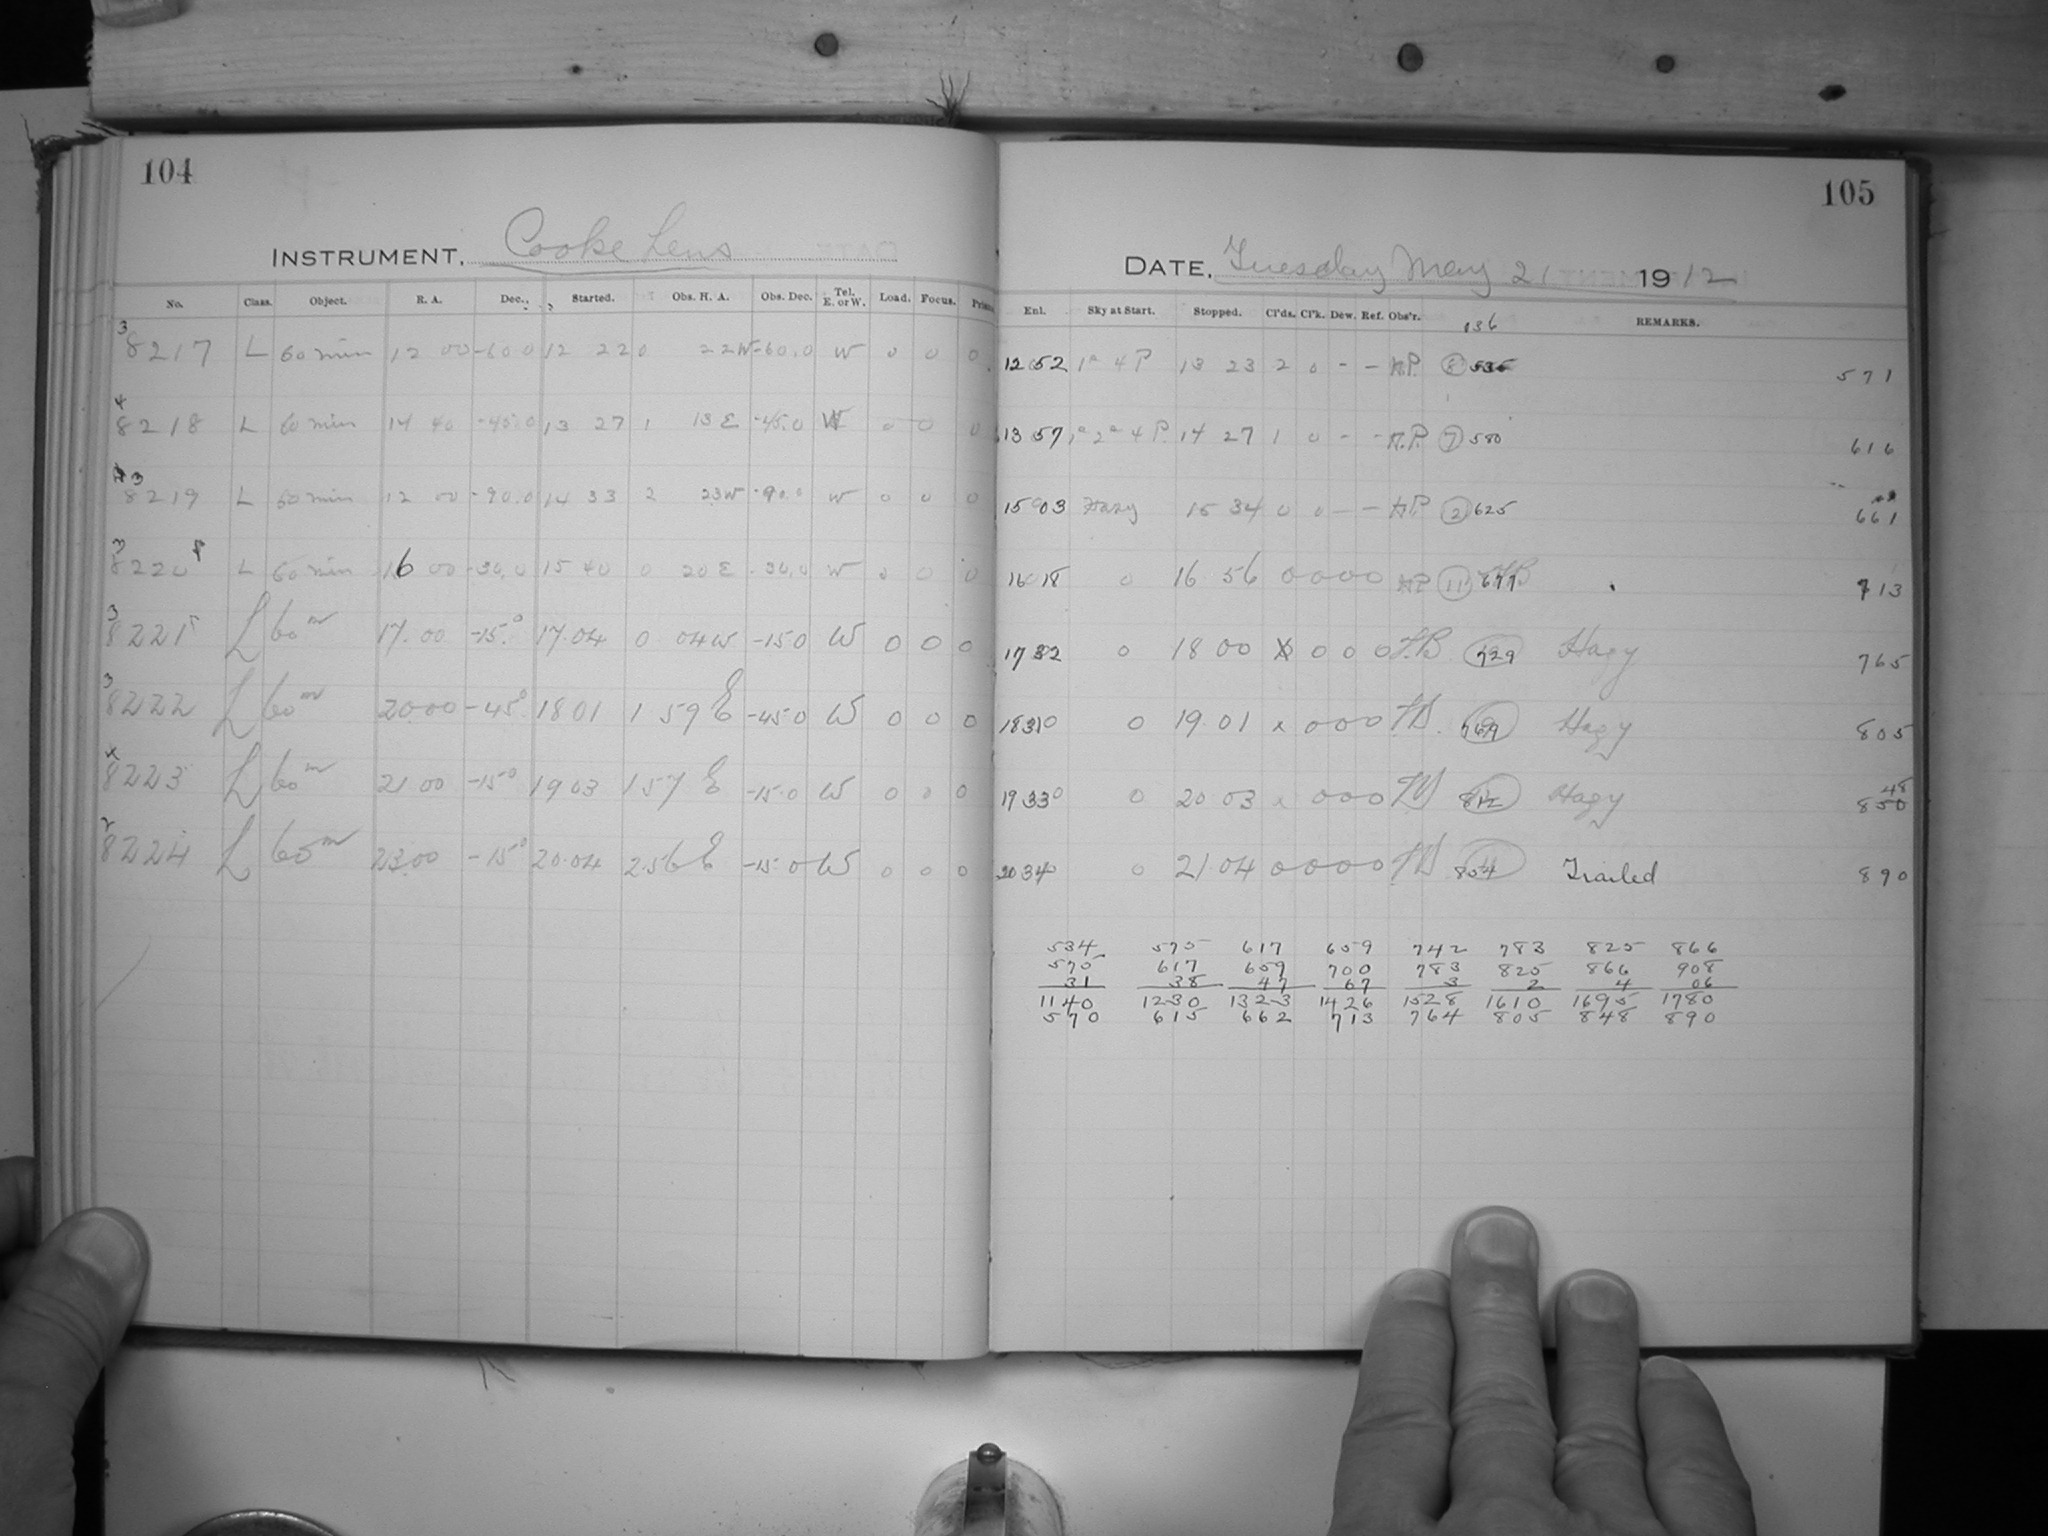 104
INSTRUMENT. Cooke Lens
No. Class. Object. R. A. Dec. Started. Obs. H. A. Obs. Dec. Tel. E. or W. Load. Focus.
3 8217 L 60 min 12 00 -60.0 12 22 0 22 W -60.0 W 0 0 0
4 8218 L 60 min 14 40 -45.0 13 27 1 13 E -45.0 W 0 0 0
3 8219 L 60 min 12 00 -90.0 14 33 2 23 W -90.0 W 0 0 0
3 8220 L 60 min 16 00 -30.0 15 40 0 20 E -30.0 W 0 0 0
3 8221 L 60m 17.00 -15.0 17.04 0 04 W -15 0 W 0 0 0
3 8222 L 60m 20 00 -45° 18 01 1 59 E -45 0 W 0 0 0
8223 L 60m 21 00 -15° 19 03 1 57 E -15.0 W 0 0 0
8224 L 60m 23.00 -15° 20.04 2.56 E -15.0 W 0 0 0
105
DATE. Tuesday May 21 1912
Enl. Sky at Start. Stopped. Cl'ds. Cl'k. Dew. Ref. Obs'r. REMARKS.
136
12 52 1a 4 P 13 23 2 0 - - H.P. 8 571
13 57 1a 2a 4 P. 14 27 1 0 - - H.P. 7 580 616
15 03 Hazy 15 34 0 0 - - H.P 2 625 661
16 18 0 16 56 0 0 0 0 HP 11 677 713
17 32 0 18 00 x 0 0 0 F.B 729 Hazy 765
18 31 0 0 19.01 x 0 0 0 F.B. 769 Hazy 805
19 33 0 0 20 03 x 0 0 0 F.B 812 Hazy 850 48
20 34 0 0 21.04 0 0 0 0 F.B 854 Trailed 890
534 575 617 659 742 783 825 866
570 617 659 700 783 825 866 908
31 38 47 67 3 2 4 06
1140 1230 1323 1426 1528 1610 1695 1780
570 615 662 713 764 805 848 890